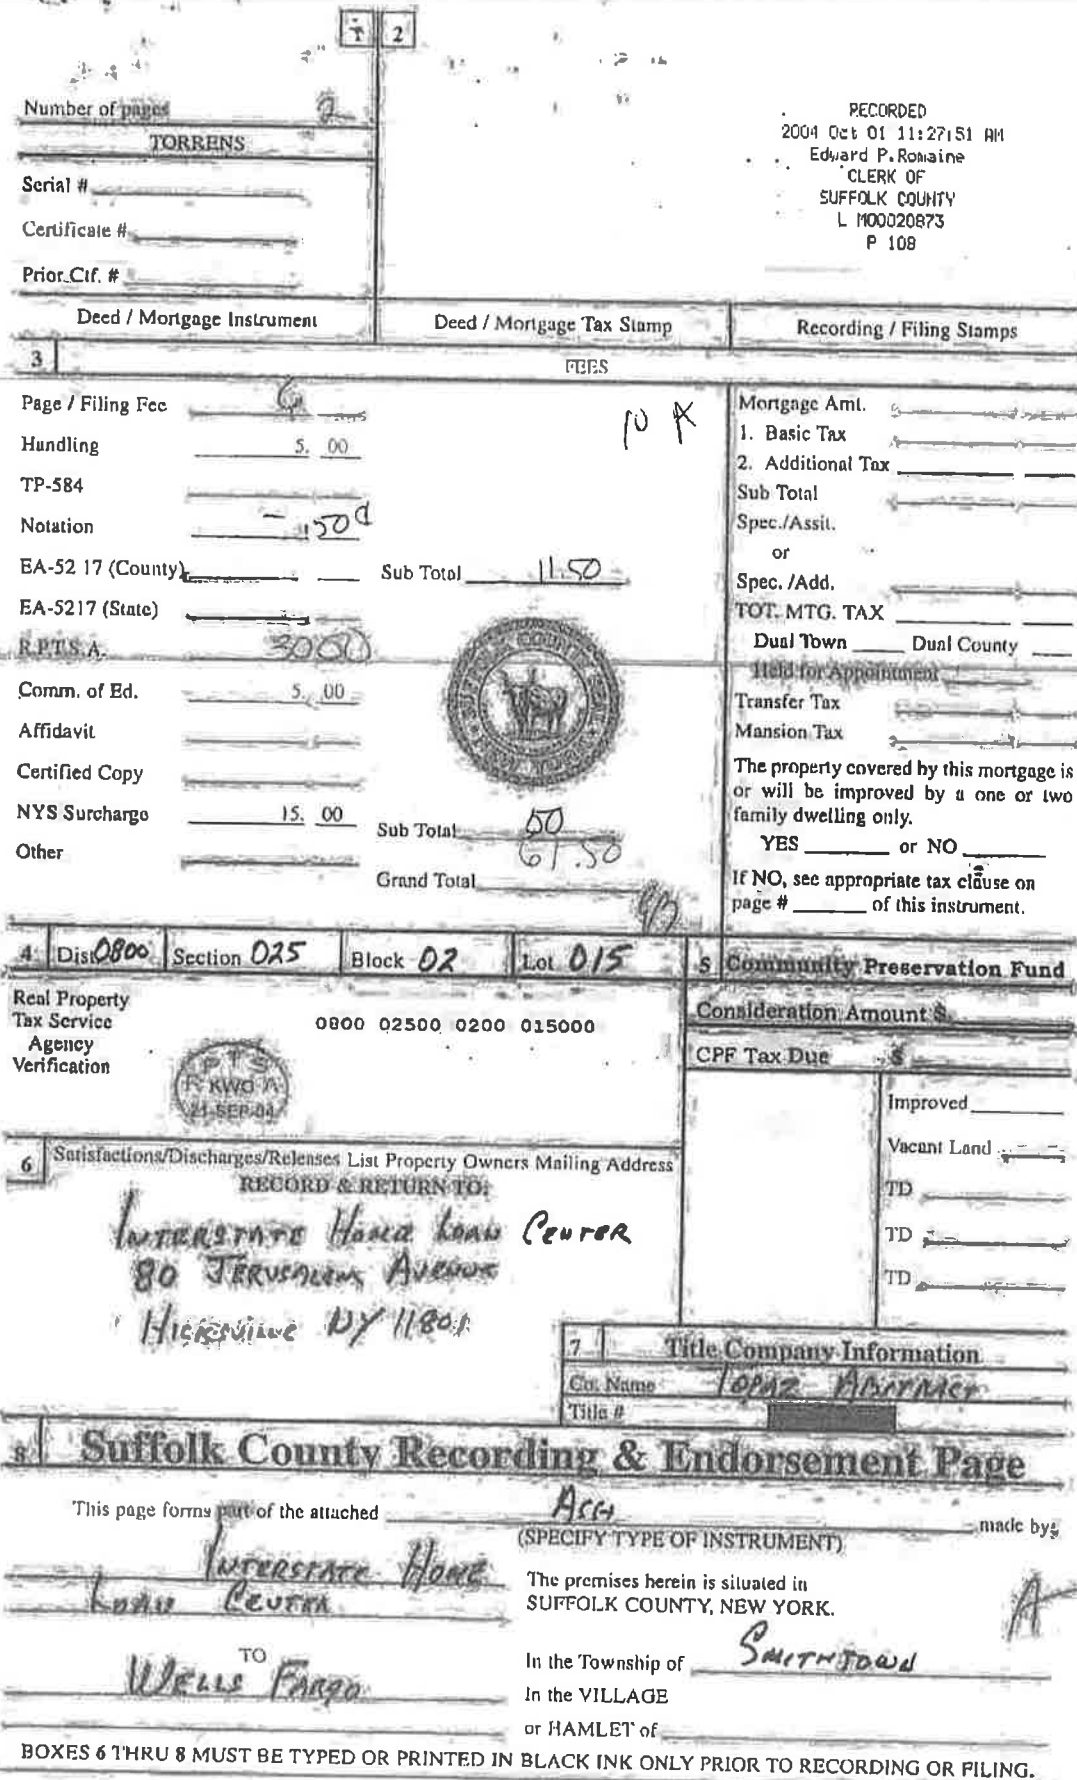 1 2
Number of pages 2
TORRENS
Serial #
Certificate #
Prior Ctf. #
RECORDED
2004 Oct 01 11:27:51 AM
Edward P.Romaine
CLERK OF
SUFFOLK COUNTY
L M00020873
P 108
Deed / Mortgage Instrument
Deed / Mortgage Tax Stamp
Recording / Filing Stamps
3 FEES
Page / Filing Fee 6
Handling 5. 00
TP-584
Notation .50
EA-52 17 (County)
Sub Total 11.50
EA-5217 (State)
R.P.T.S.A. 30 00
Comm. of Ed. 5. 00
Affidavit
Certified Copy
NYS Surcharge 15. 00
Sub Total 50
Other
61.50
Grand Total
Mortgage Amt.
1. Basic Tax
2. Additional Tax
Sub Total
Spec./Assit.
or
Spec. /Add.
TOT. MTG. TAX
Dual Town Dual County
Held for Appointment
Transfer Tax
Mansion Tax
The property covered by this mortgage is
or will be improved by a one or two
family dwelling only.
YES or NO
If NO, see appropriate tax clause on
page # of this instrument.
4 Dist 0800 Section 025 Block 02 Lot 015
Real Property
Tax Service
Agency
Verification
0800 02500 0200 015000
KWO
21-SEP-04
5 Community Preservation Fund
Consideration Amount $
CPF Tax Due $
Improved
Vacant Land
TD
TD
TD
6 Satisfactions/Discharges/Releases List Property Owners Mailing Address
RECORD & RETURN TO:
INTERSTATE HOME LOAN CENTER
80 JERUSALEM AVENUE
HICKSVILLE NY 11801
7 Title Company Information
Co. Name TOPAZ ABSTRACT
Title #
8 Suffolk County Recording & Endorsement Page
This page forms part of the attached made by:
(SPECIFY TYPE OF INSTRUMENT)
INTERSTATE HOME
LOAN CENTER
The premises herein is situated in
SUFFOLK COUNTY, NEW YORK.
TO
WELLS FARGO
In the Township of SMITHTOWN
In the VILLAGE
or HAMLET of
BOXES 6 THRU 8 MUST BE TYPED OR PRINTED IN BLACK INK ONLY PRIOR TO RECORDING OR FILING.